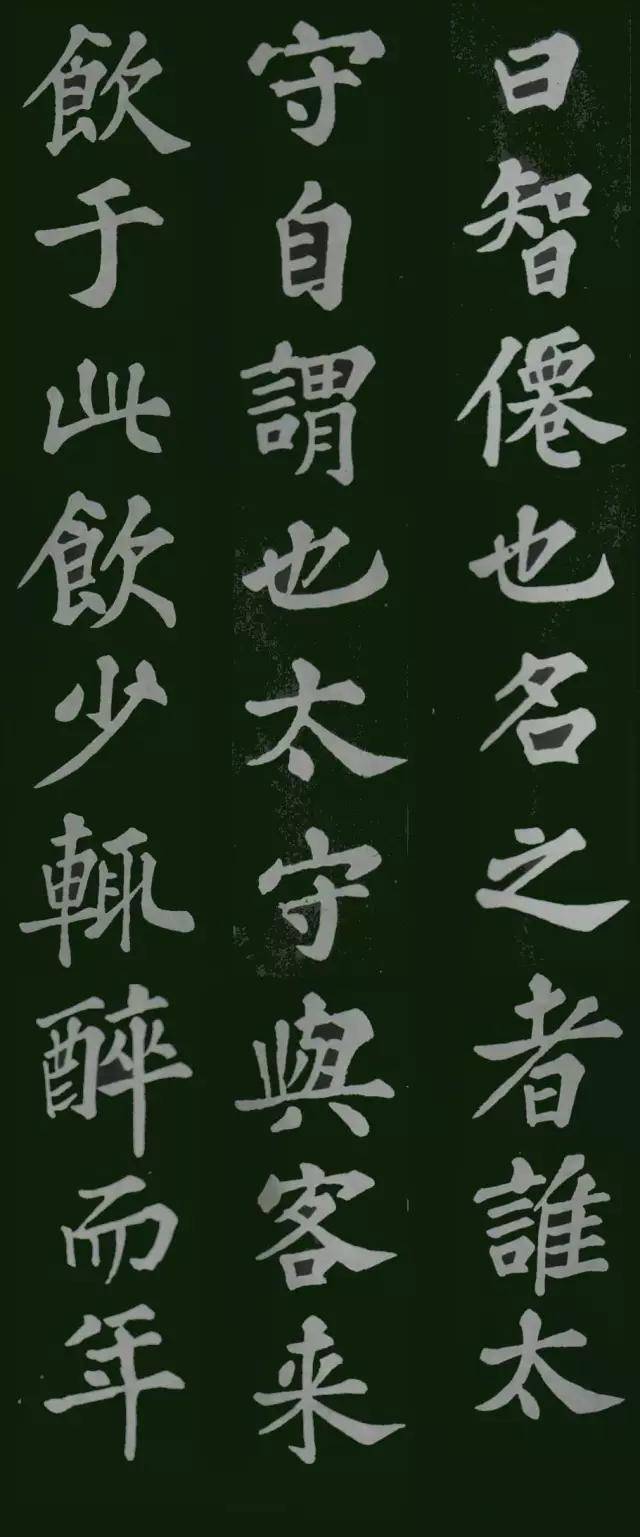 曰智僊也名之者誰太
守自謂也太守與客来
飲于此飲少輒醉而年